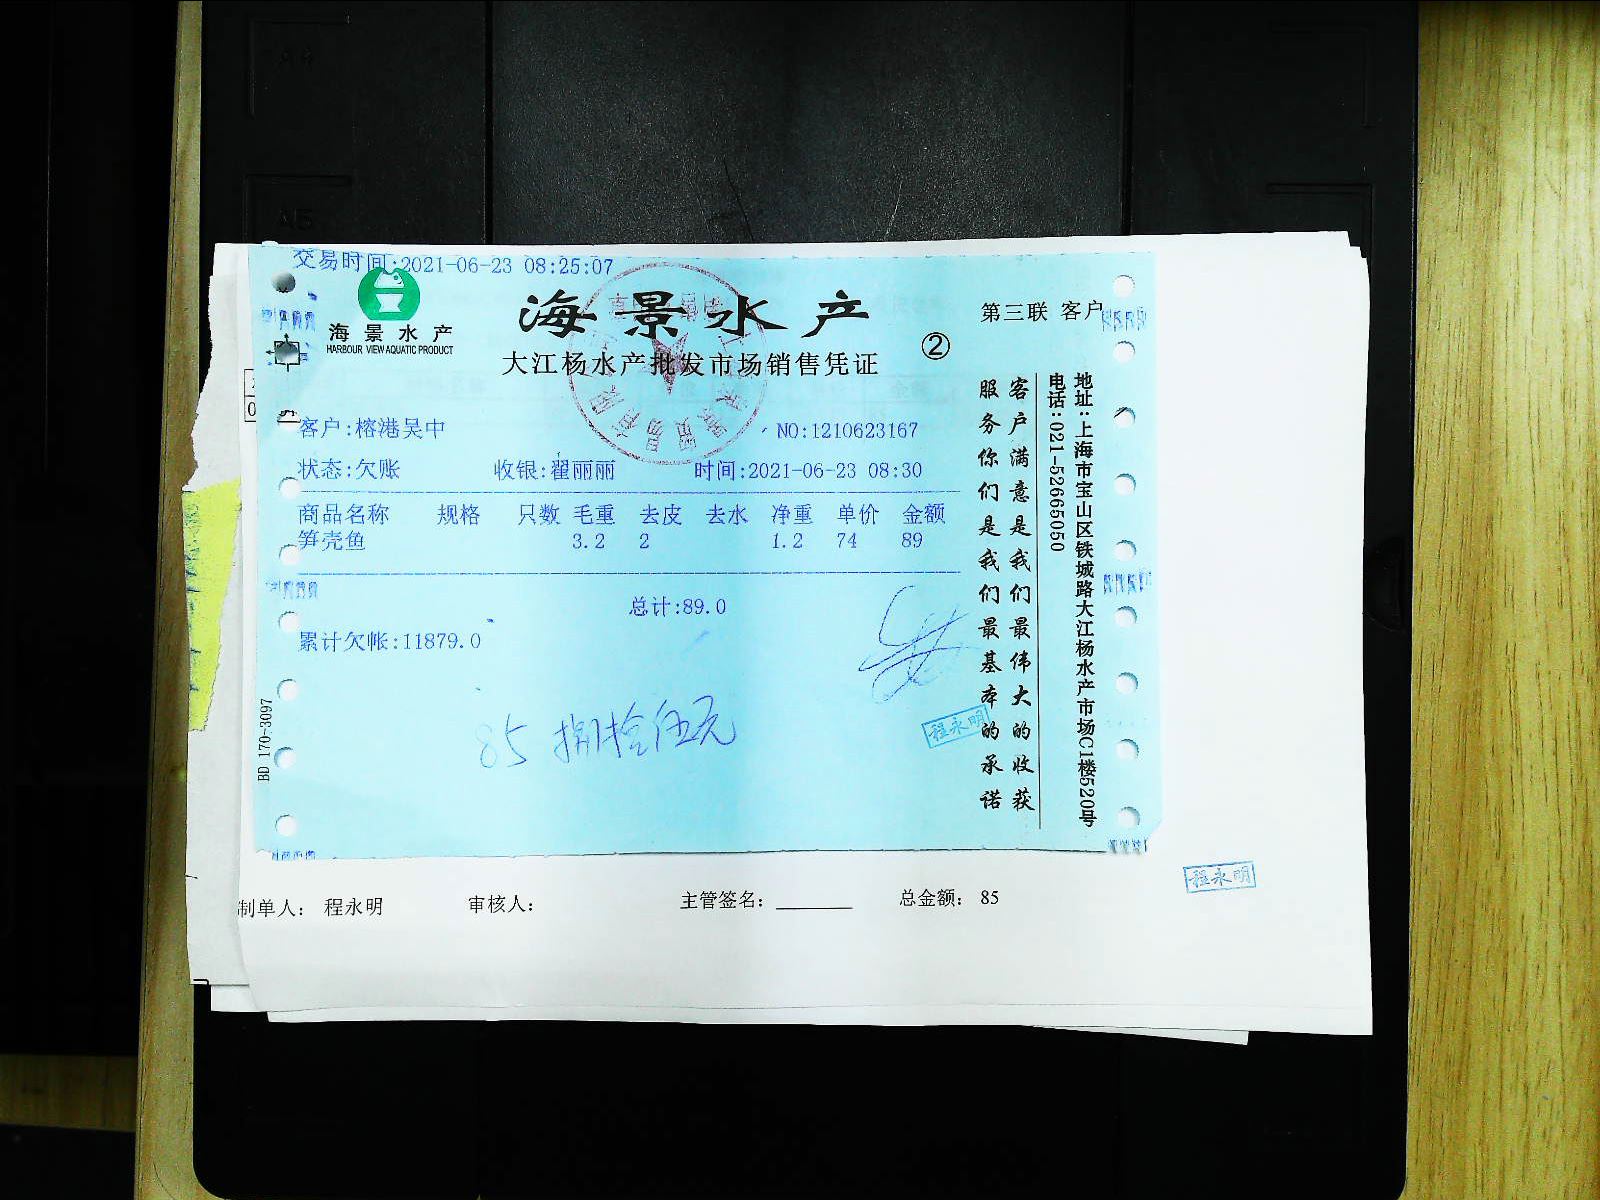 交易时间:2021-06-23 08:25:07
海景水产
HARBOUR VIEW AQUATIC PRODUCT
海景水产
大江杨水产批发市场销售凭证
②
第三联 客户
客户:榕港吴中
NO:1210623167
状态:欠账 收银:翟丽丽 时间:2021-06-23 08:30
商品名称 规格 只数 毛重 去皮 去水 净重 单价 金额
笋壳鱼 3.2 2 1.2 74 89
总计:89.0
累计欠帐:11879.0
85 捌拾伍元
程永明
客户满意是我们最伟大的收获
服务你们是我们最基本的承诺
地址:上海市宝山区铁城路大江杨水产市场C1楼520号
电话:021-52665050
BD 170-3097
制单人: 程永明 审核人: 主管签名: 总金额: 85
程永明